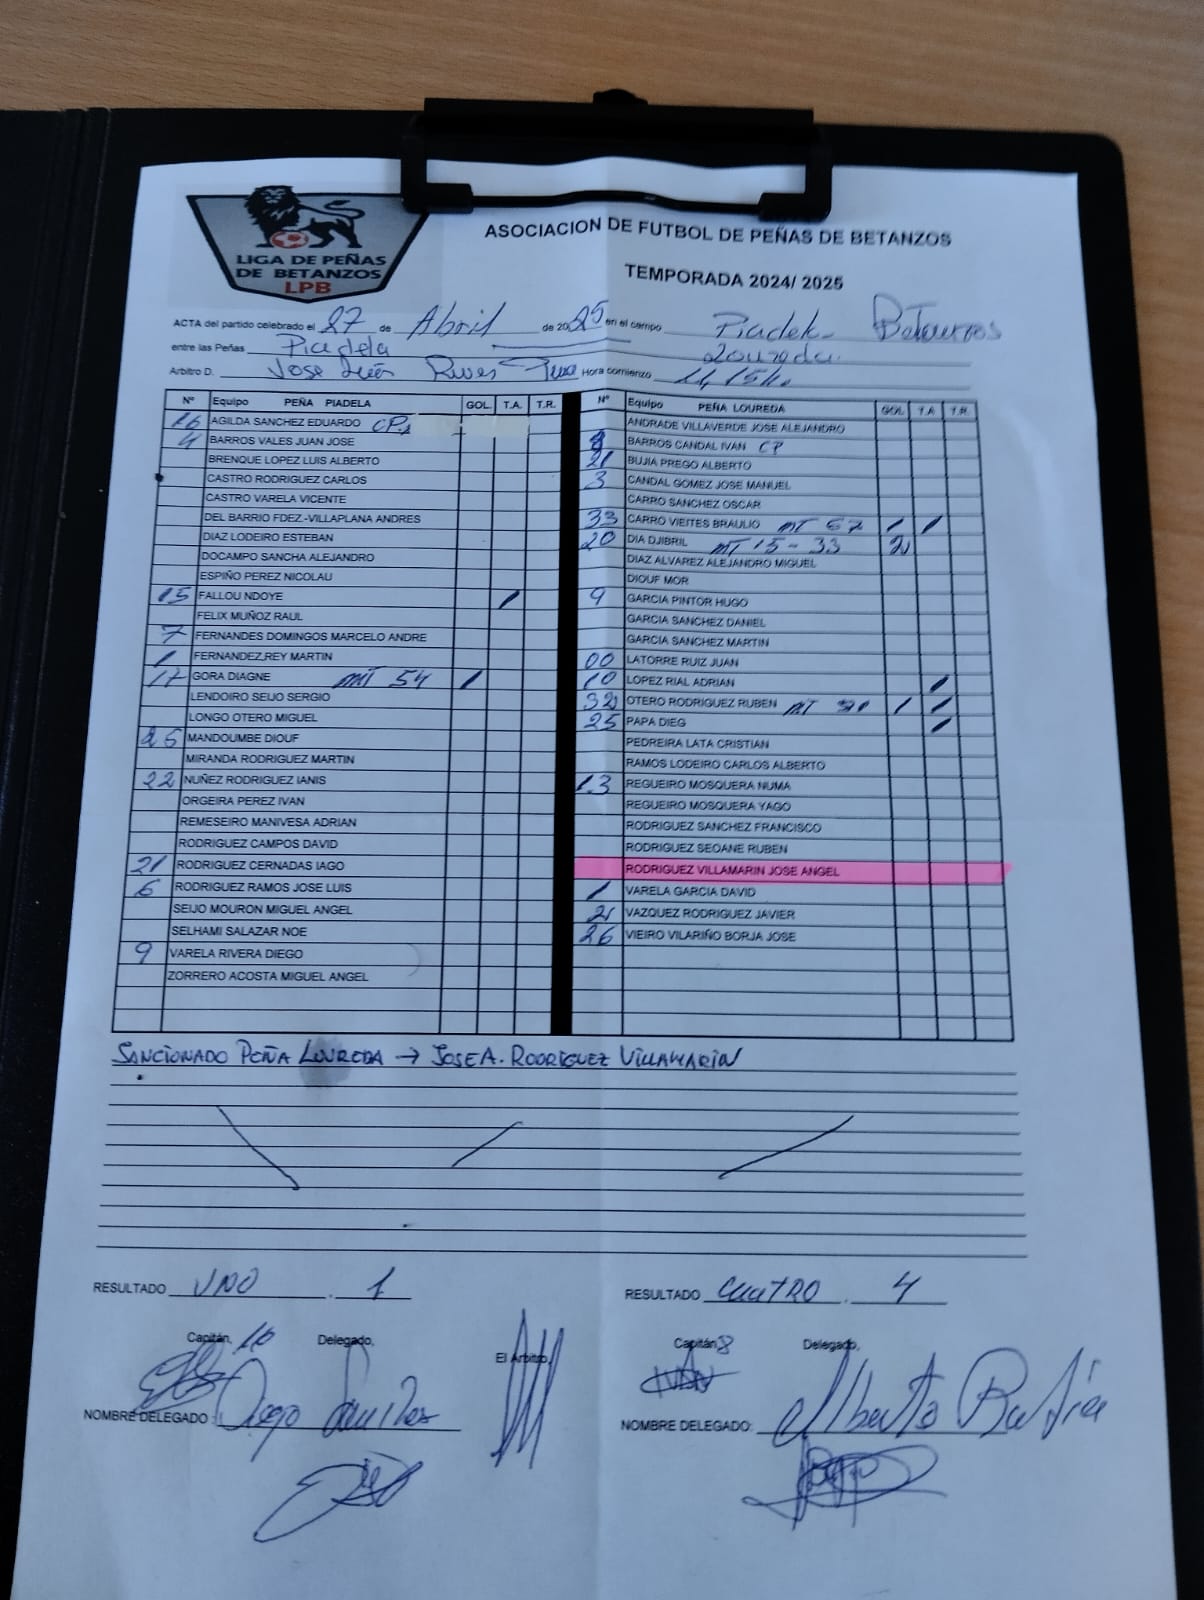 LIGA DE PEÑAS
DE BETANZOS
LPB
ASOCIACION DE FUTBOL DE PEÑAS DE BETANZOS
TEMPORADA 2024/ 2025
ACTA del partido celebrado el 27 de Abril de 2025 en el campo Piadela Betanzos
entre las Peñas Piadela Loureda
Arbitro D. Jose Hora comienzo 11,15h.
Nº Equipo PEÑA PIADELA GOL. T.A. T.R.
16 AGILDA SANCHEZ EDUARDO CP.
4 BARROS VALES JUAN JOSE
BRENQUE LOPEZ LUIS ALBERTO
CASTRO RODRIGUEZ CARLOS
CASTRO VARELA VICENTE
DEL BARRIO FDEZ.-VILLAPLANA ANDRES
DIAZ LODEIRO ESTEBAN
DOCAMPO SANCHA ALEJANDRO
ESPIÑO PEREZ NICOLAU
15 FALLOU NDOYE /
FELIX MUÑOZ RAUL
7 FERNANDES DOMINGOS MARCELO ANDRE
1 FERNANDEZ REY MARTIN
17 GORA DIAGNE MT 54 1
LENDOIRO SEIJO SERGIO
LONGO OTERO MIGUEL
25 MANDOUMBE DIOUF
MIRANDA RODRIGUEZ MARTIN
22 NUÑEZ RODRIGUEZ IANIS
ORGEIRA PEREZ IVAN
REMESEIRO MANIVESA ADRIAN
RODRIGUEZ CAMPOS DAVID
21 RODRIGUEZ CERNADAS IAGO
6 RODRIGUEZ RAMOS JOSE LUIS
SEIJO MOURON MIGUEL ANGEL
SELHAMI SALAZAR NOE
9 VARELA RIVERA DIEGO
ZORRERO ACOSTA MIGUEL ANGEL
Nº Equipo PEÑA LOUREDA GOL. T.A. T.R.
ANDRADE VILLAVERDE JOSE ALEJANDRO
8 BARROS CANDAL IVAN CP
21 BUJIA PREGO ALBERTO
3 CANDAL GOMEZ JOSE MANUEL
CARRO SANCHEZ OSCAR
33 CARRO VIEITES BRAULIO MT 67 1 /
20 DIA DJIBRIL MT 15-33 2
DIAZ ALVAREZ ALEJANDRO MIGUEL
DIOUF MOR
9 GARCIA PINTOR HUGO
GARCIA SANCHEZ DANIEL
GARCIA SANCHEZ MARTIN
00 LATORRE RUIZ JUAN
10 LOPEZ RIAL ADRIAN /
32 OTERO RODRIGUEZ RUBEN MT 1 /
25 PAPA DIEG /
PEDREIRA LATA CRISTIAN
RAMOS LODEIRO CARLOS ALBERTO
13 REGUEIRO MOSQUERA NUMA
REGUEIRO MOSQUERA YAGO
RODRIGUEZ SANCHEZ FRANCISCO
RODRIGUEZ SEOANE RUBEN
RODRIGUEZ VILLAMARIN JOSE ANGEL
1 VARELA GARCIA DAVID
VAZQUEZ RODRIGUEZ JAVIER
26 VIEIRO VILARIÑO BORJA JOSE
SANCIONADO PEÑA LOUREDA → JOSE A. RODRIGUEZ VILLAMARIN
RESULTADO UNO . 1
RESULTADO CUATRO . 4
Capitán, 16 Delegado,
El Arbitro,
Capitán 8 Delegado,
NOMBRE DELEGADO: Diego
NOMBRE DELEGADO: Alberto